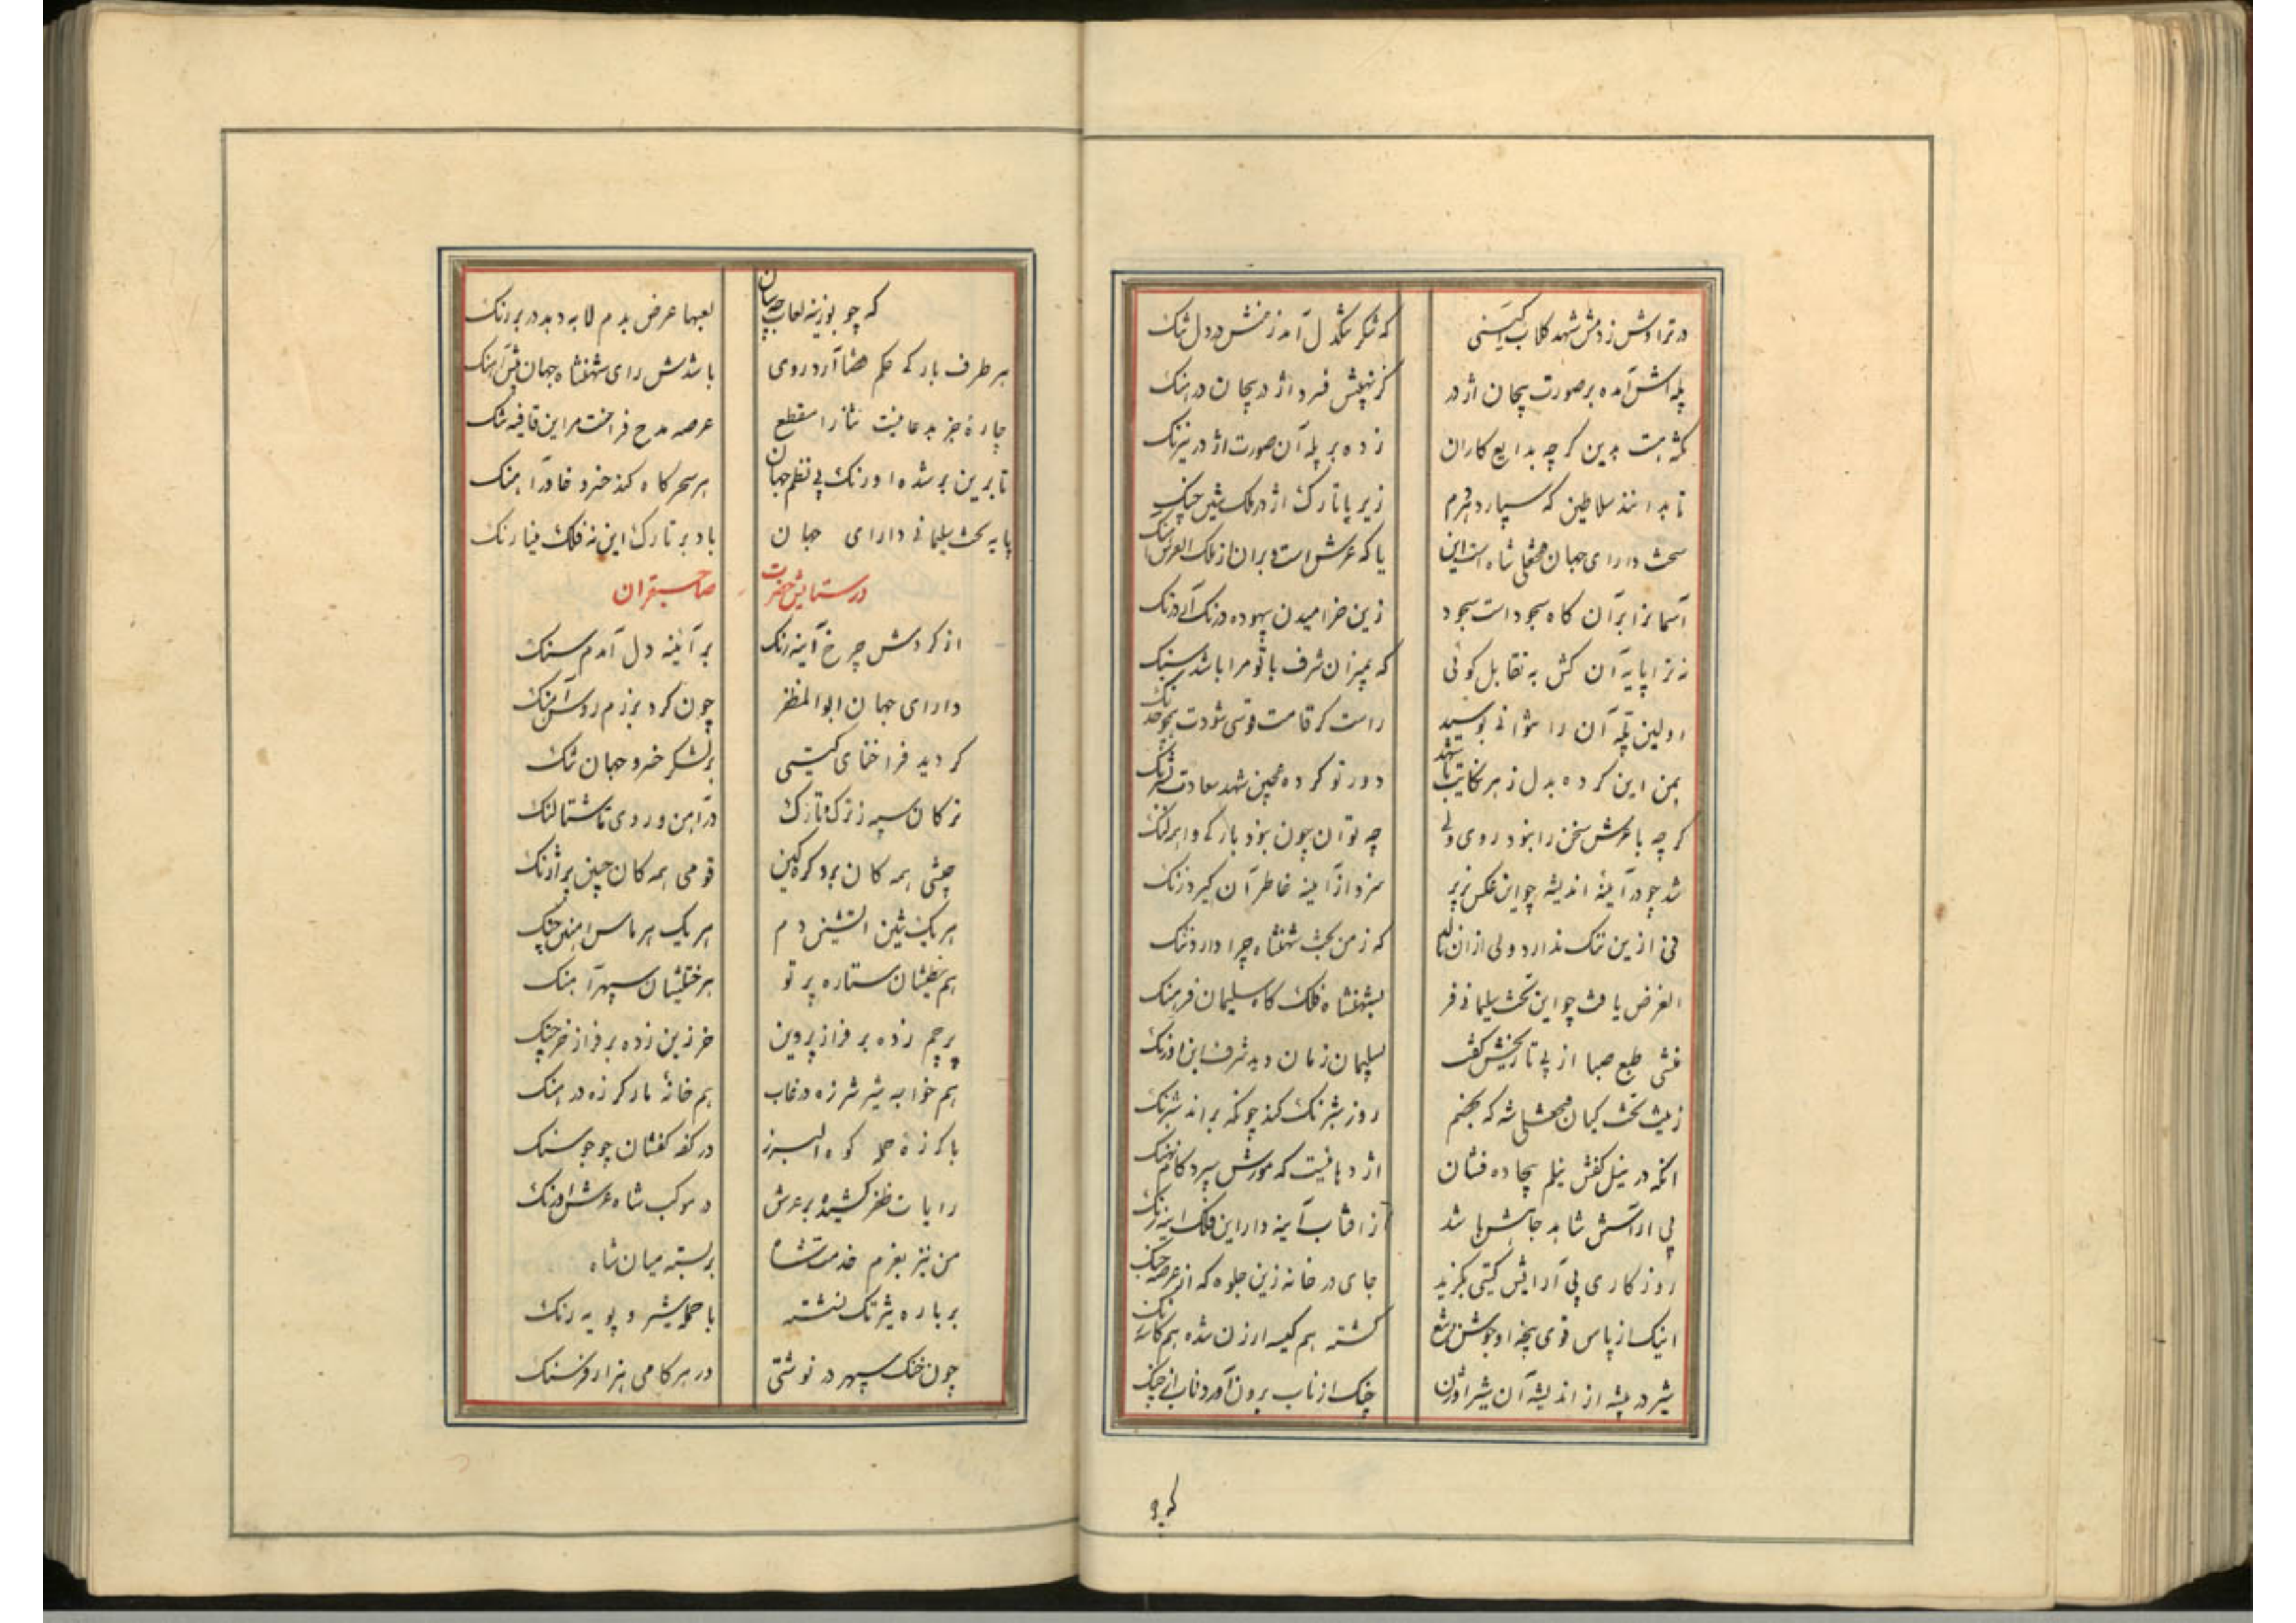 در تراوش زدمش شهد کلاب که شکر شکر دل آمد زمنش در دل تنک
پله اش آمده بر صورت پیچان اژدر کز نهیبش فرد اژدر پیچان در هنک
نکته هست بدین کرچه بدایع کاران زده بر پله آن صورت اژدر نیرنک
تا بدانند سلاطین که سپارد زیر پا تارک اژدر فلک چنک
تخت دارای جهان شاه است این یا که عرش است و بران از ملک العرش
آسمانرا بر آن کاه سجود است سجود زین خرامیدن بیهوده درنک آی درنک
نه ترا پایه آن کش به تقابل کوئی که بمیزان شرف با تو مرا باشد سنک
اولین پله آن را نتوانی بوسید راست کر قامت قوسی شودت همچو خدنک
بمن این کرده بدل زهر نکایت با شهد دور تو کرده همچین شهد سعادت شرنک
کر چه با عرش سخن را نبود روی ولی چه توان چون نبود بارکی واهر لنک
شد چو در آینه اندیشه چو این عکس پذیر سزد از آینه خاطر آن کیرد زنک
فی ازین ننک ندارد ولی از آن نالد که زمن تخت شهنشاه چرا دارد ننک
الغرض یافت چو این تخت سلیمانی فر بشهنشاه فلک کاه سلیمان فرهنک
منشی طبع صبا از پی تاریخش کفت بسلیمان زمان دید شرف این اورنک
زینت تخت کیان شه که بخشم روز شیر شرنک کند چونکه براند شبرنک
آنکه در نیل کفش نیلم بیجاده فشان اژدهائیست که مورش سپرد کام نهنک
پی آرایش شاهد جاهش باشد از آفتاب آینه دار این فلک آینه رنک
روزکاری پی آرایش کیتی بکزید جای در خانه زین جلوه که از عرصه جنک
اینک از پاس قوی پنجه او کشته هم کیسه ارزن شده هم کاسه
شیر در بیشه از اندیشه آن شیر اوژن چنک از ناب برون آورد ناب از چنک
که چو
که چو بوزینه لعاب لعبها عرض بدم لابه دهد در بر رنک
هر طرف بار که حکم قضا آرد روی باشدش رای شهنشاه جهان پیش آهنک
چاره جز بدعا نیست ثنا را مقطع عرصه مدح فراخست مر این قافیه تنک
تا برین بر شده اورنک پی نظم جهان هر سحر کاه کند خسرو خاور آهنک
پایه تخت سلیمانی دارای جهان باد بر تارک این نه فلک مینا رنک
در ستایش حضرت صاحبقران
از کردش چرخ آینه رنک بر آینه دل آمدم سنک
دارای جهان ابوالمظفر چون کرد برزم روس آهنک
کردید فراخنای کیتی بر لشکر خسرو جهان تنک
ترکان سپه ز ترک تارک در آهن و روی تا شتالنک
جیشی همه کان برد کره کین قومی همه کان چین بر آژنک
هر یک تنین آتشین دم هر یک هرماس آهنین چنک
هم ستاره پرتو هر ختلیشان سپهر آهنک
پرچم زده بر فراز پروین خرزین زده بر فراز خرچنک
هم خوابه شیر شرزه در غاب هم خانه مار کرزه در هنک
با کرزه حمله کوه البرز در کفه کفشان چو جو سنک
رایات ظفر کشیده بر عرش در موکب شاه عرش اورنک
من نیز بعزم خدمت شاه بر بسته میان شاه
بر باره تیزتک نشسته با حمله شیر و پویه رنک
چون خنک سپهر در نوشتی در هر کامی هزار فرسنک